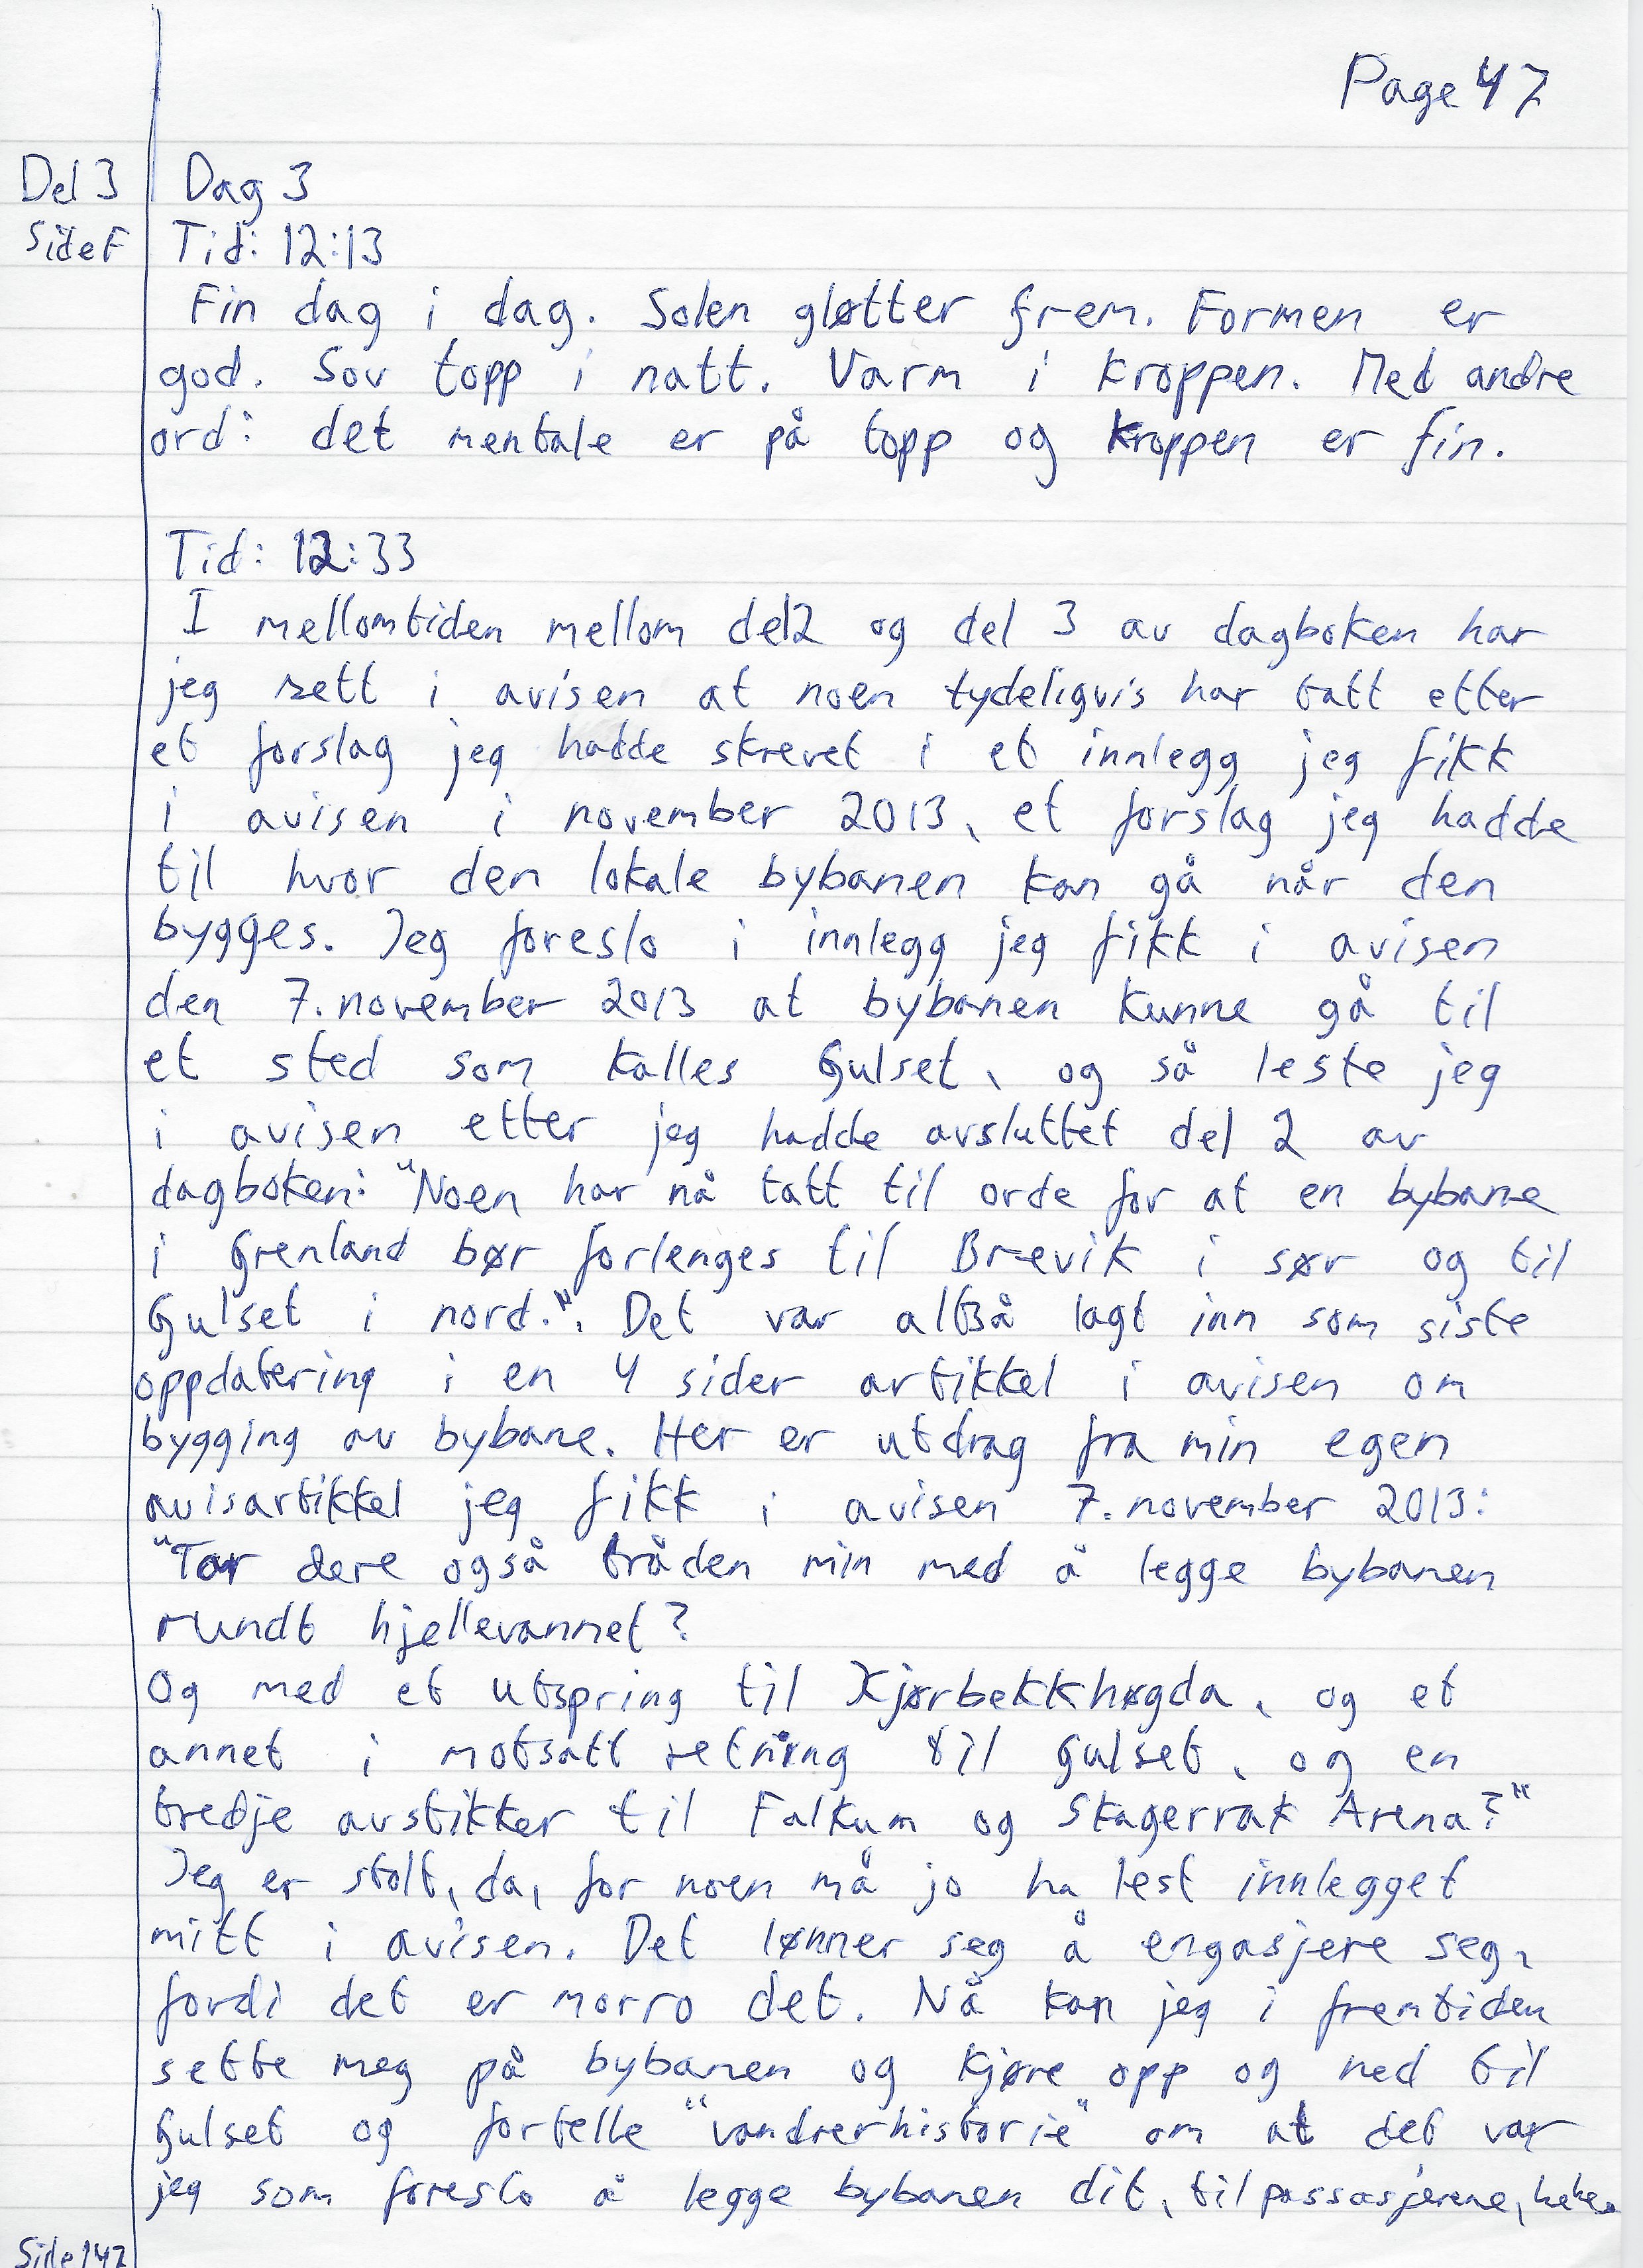 Page 47
Del 3 Dag 3
Side F Tid: 12:13
Fin dag i dag. Solen gløtter frem. Formen er
god. Sov topp i natt. Varm i kroppen. Med andre
ord: det mentale er på topp og kroppen er fin.
Tid: 12:33
I mellomtiden mellom del 2 og del 3 av dagboken har
jeg sett i avisen at noen tydeligvis har tatt etter
et forslag jeg hadde skrevet i et innlegg jeg fikk
i avisen i november 2013, et forslag jeg hadde
til hvor den lokale bybanen kan gå når den
bygges. Jeg foreslo i innlegg jeg fikk i avisen
den 7. november 2013 at bybanen kunne gå til
et sted som kalles Gulset, og så leste jeg
i avisen etter jeg hadde avsluttet del 2 av
dagboken: "Noen har nå tatt til orde for at en bybane
i Grenland bør forlenges til Brevik i sør og til
Gulset i nord.". Det var altså lagt inn som siste
oppdatering i en 4 sider artikkel i avisen om
bygging av bybane. Her er utdrag fra min egen
avisartikkel jeg fikk i avisen 7. november 2013:
"Tar dere også tråden min med å legge bybanen
rundt hjellevannet?
Og med et utspring til Kjørbekkhøgda, og et
annet i motsatt retning til Gulset, og en
tredje avstikker til Falkum og Skagerrak Arena?"
Jeg er stolt, da, for noen må jo ha lest innlegget
mitt i avisen. Det lønner seg å engasjere seg,
fordi det er morro det. Nå kan jeg i fremtiden
sette meg på bybanen og kjøre opp og ned til
Gulset og fortelle "vandrerhistorie" om at det var
jeg som foreslo å legge bybanen dit, til passasjerene, hehe.
Side 147